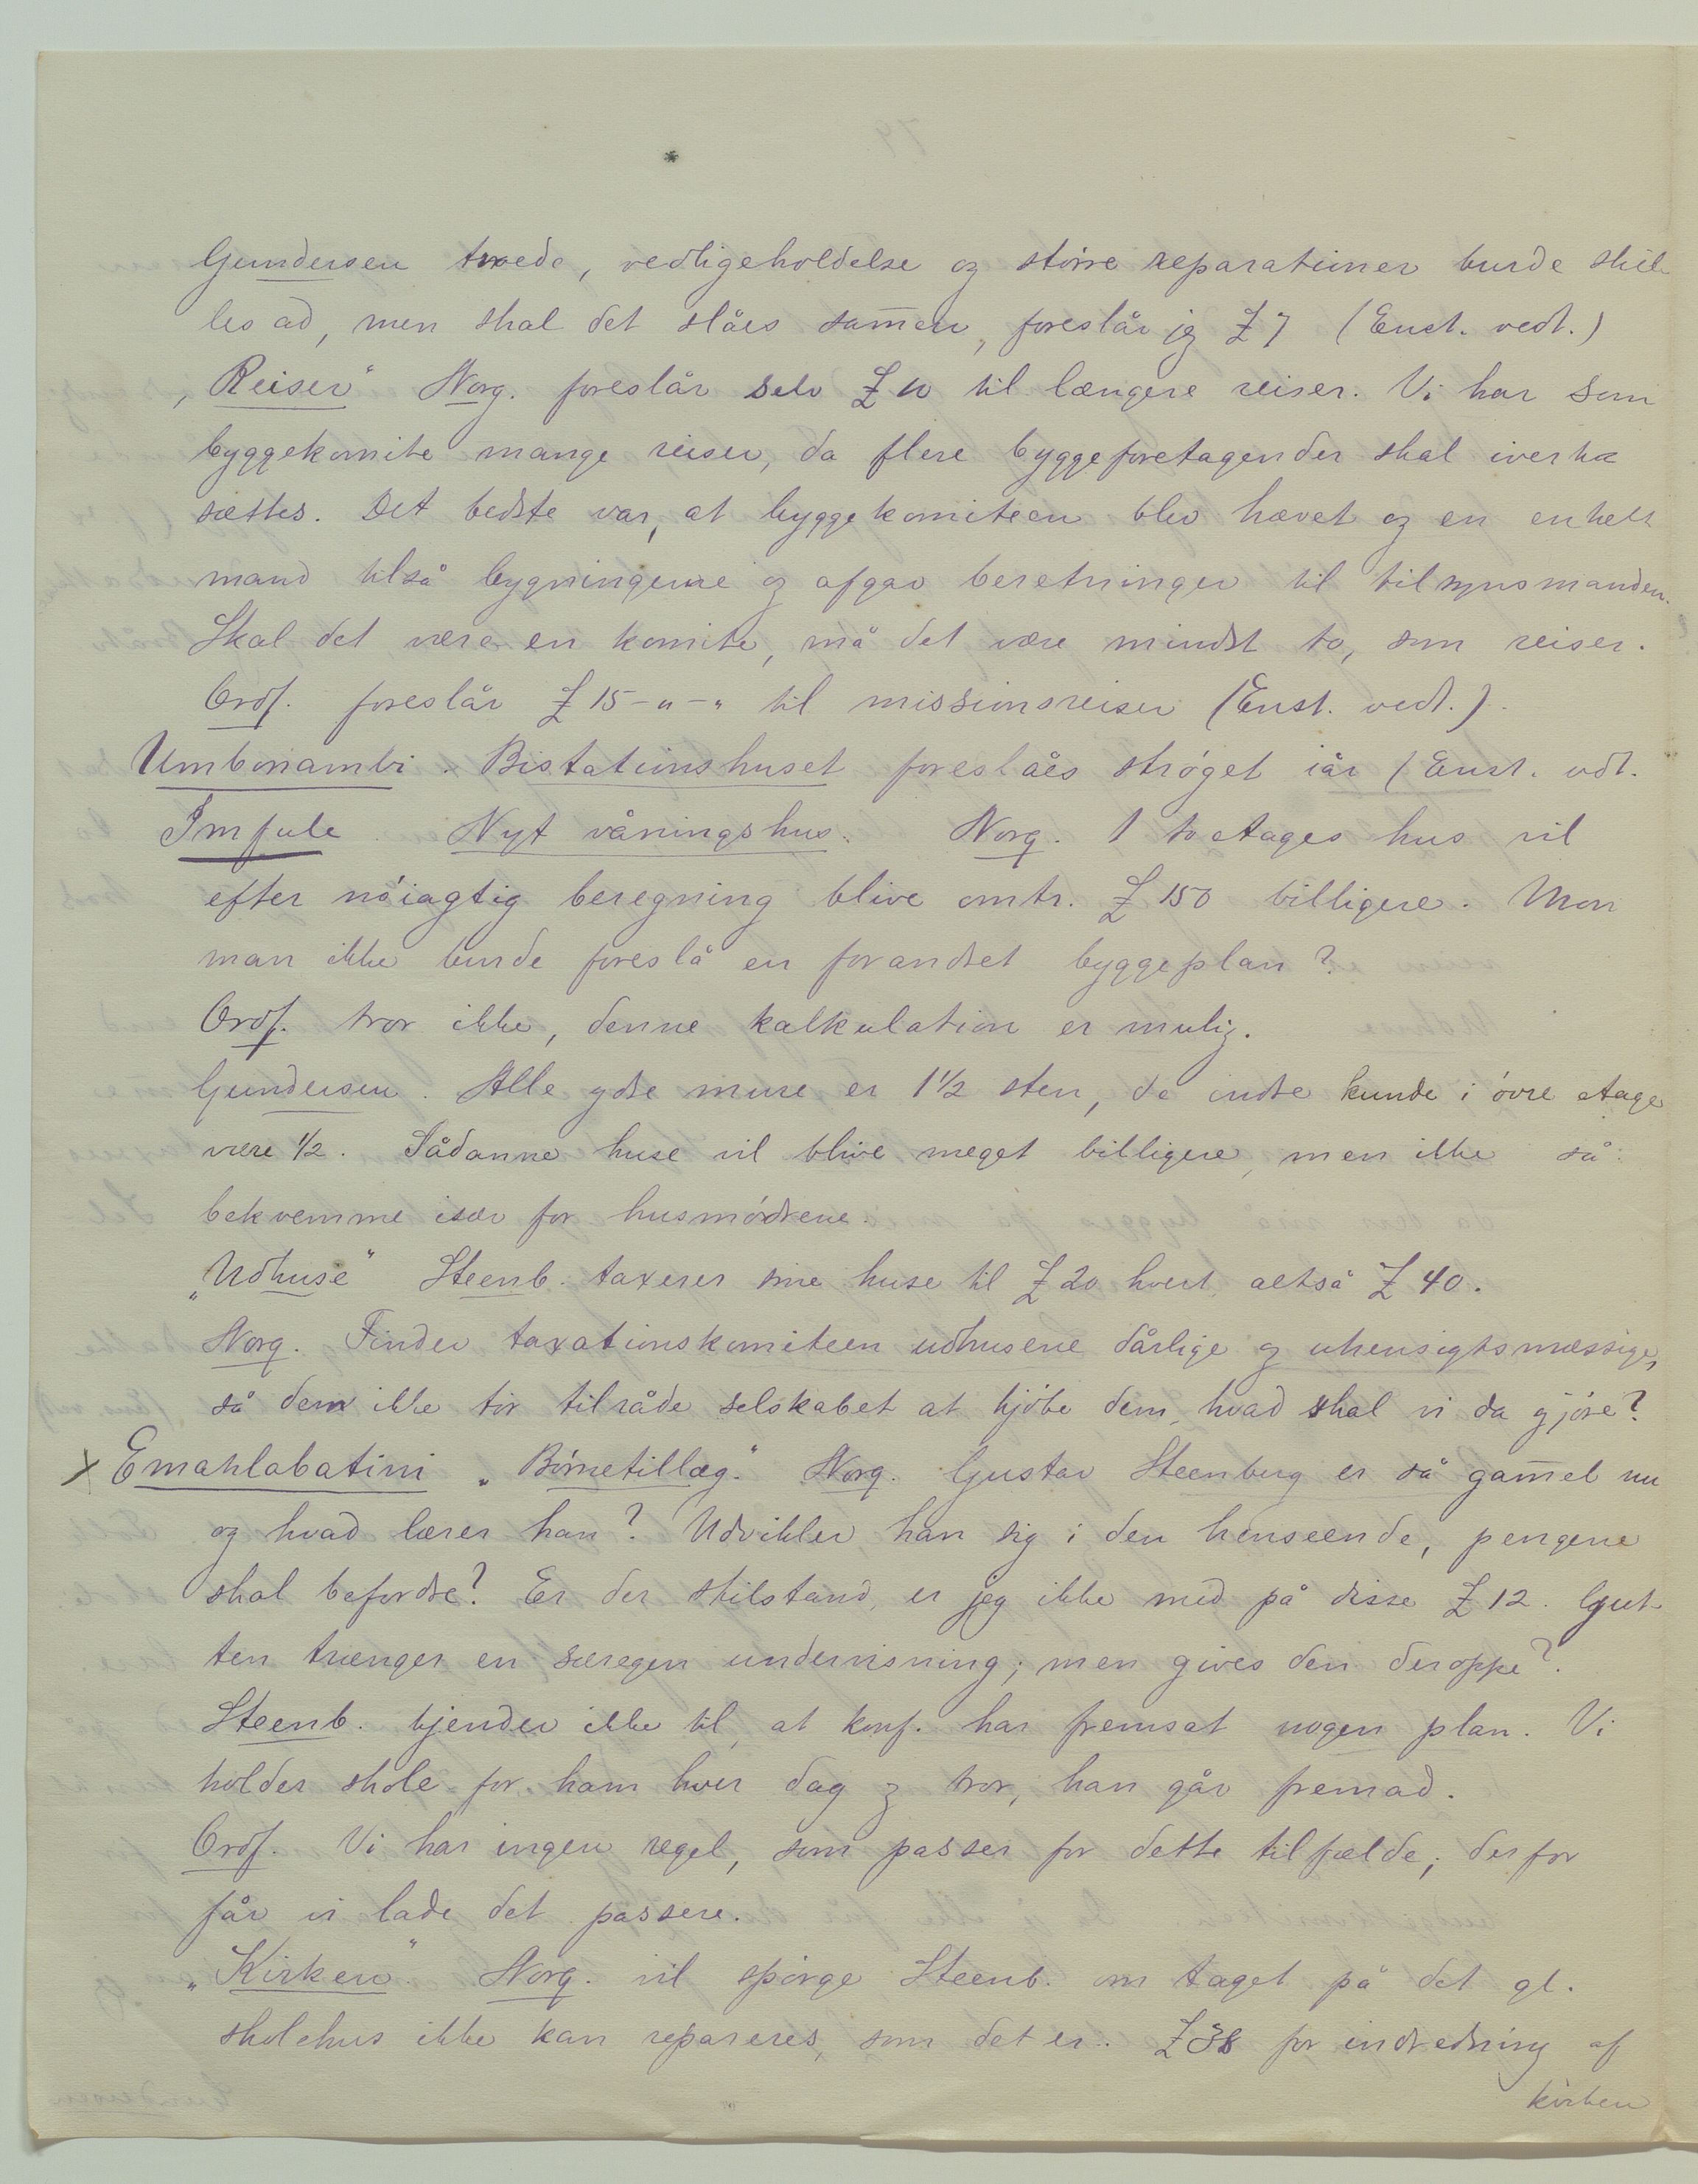 Gundersen troede, vedligeholdelse og större reparationer burde skil-
les ad, men skal det slåes sam̅en, foreslår jeg £ 7 (Enst. vedt.)
„Reiser" Norg. foreslår selv £ 10 til længere reiser. Vi har som
byggekomite mange reiser, da flere byggeforetagender skal iverk-
sættes. Det bedste var, at byggekomiteen blev hævet og en enkelt
mand tilså bygningerne og afgav beretninger til tilsynsmanden.
Skal det være en komite, må det være mindst to, som reiser.
Ordf. foreslår £ 15-"-" til missionsreiser (Enst. vedt.).
Umbonambi. Bistationshuset foreslåes ströget iår (Enst. vdt.
Imfule. Nyt våningshus. Norg. 1 to etages hus vil
efter nöiagtig beregning blive omtr. £ 150 billigere. Mon
man ikke burde foreslå en forandret byggeplan?
Ordf. tror ikke, denne kalkulation er mulig.
Gundersen. Alle ydre mure er 1½ sten, de indre kunde i övre etage
være ½. Sådanne huse vil blive meget billigere, men ikke så
bekvemme især for husmödrene.
„Udhuse" Steenb. taxerer sine huse til £ 20 hvert, altså £ 40.
Norg. Finder taxationskomiteen udhusene dårlige og uhensigtsmæssige,
så den ikke tör tilråde selskabet at kjöbe dem, hvad skal vi da gjöre?
x Emahlabatini „Börnetillæg." Norg. Gustav Steenberg er så gam̅el nu
og hvad lærer han? Udvikler han sig i den henseende, pengene
skal befordre? Er der stilstand, er jeg ikke med på disse £ 12. Gut-
ten trænger en særegen undervisning; men gives den deroppe?
Steenb. kjender ikke til, at konf. har fremsat nogen plan. Vi
holder skole for ham hver dag og tror, han går fremad.
Ordf. Vi har ingen regel, som passer for dette tilfælde; derfor
får vi lade det passere.
„Kirken". Norg. vil spörge Steenb. om taget på det gl.
skolehus ikke kan repareres, som det er. £ 38 for indredning af
kirken